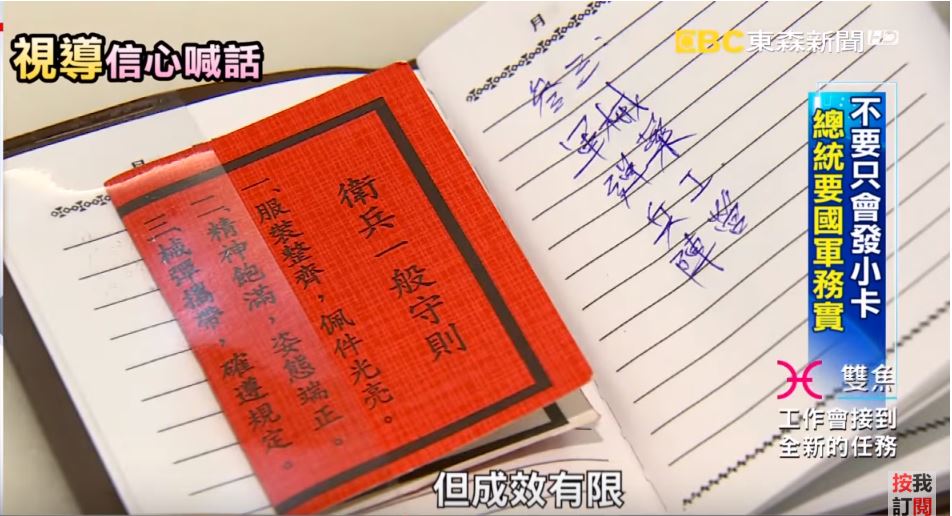 視導信心喊話
EBC東森新聞HD
不要只會發小卡
總統要國軍務實
月
衛兵一般守則
一、服裝整齊，佩件光亮。
二、精神飽滿，姿態端正。
三、械彈攜帶，確遵規定。
軍械
彈藥
兵工
陣營
雙魚
工作會接到
全新的任務
但成效有限
按我
訂閱